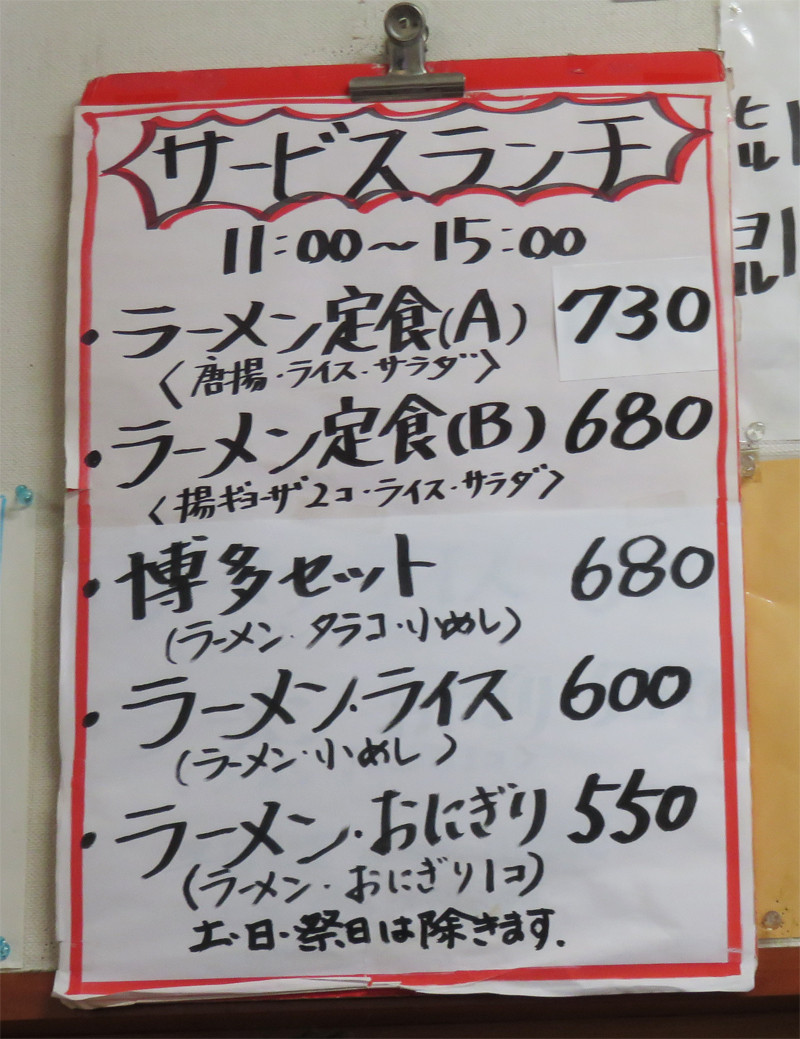 サービスランチ
11:00～15:00
・ラーメン定食(A) 730
〈唐揚・ライス・サラダ〉
・ラーメン定食(B) 680
〈揚ギョーザ2コ・ライス・サラダ〉
・博多セット 680
(ラーメン・タラコ・小めし)
・ラーメン・ライス 600
(ラーメン・小めし)
・ラーメン・おにぎり 550
(ラーメン・おにぎり1コ)
土・日・祭日は除きます.